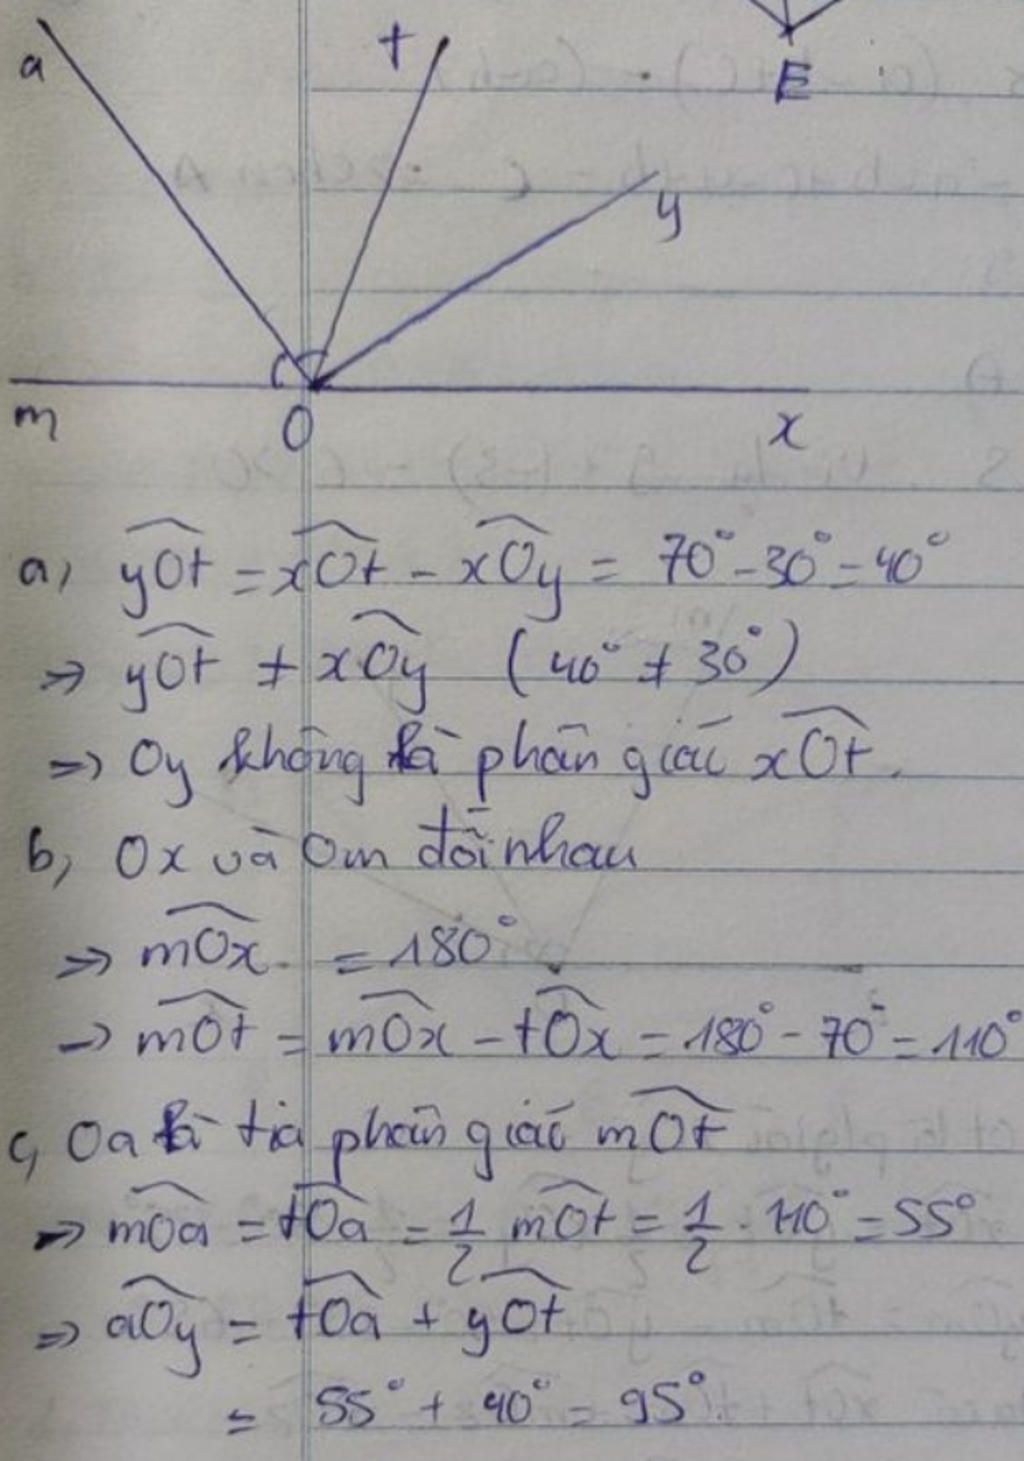 a
t
E
y
m
O
x
a, $\widehat{yOt} = \widehat{xOt} - \widehat{xOy} = 70° - 30° = 40°$
⇒ $\widehat{yOt} \neq \widehat{xOy}$ (40° ≠ 30°)
⇒ Oy không là phân giác $\widehat{xOt}$.
b, Ox và Om đối nhau
⇒ $\widehat{mOx}$ = 180°
→ $\widehat{mOt} = \widehat{mOx} - \widehat{tOx} = 180° - 70° = 110°$
c, Oa là tia phân giác $\widehat{mOt}$
⇒ $\widehat{mOa} = \widehat{tOa} = \frac{1}{2} \widehat{mOt} = \frac{1}{2} . 110° = 55°$
⇒ $\widehat{aOy} = \widehat{tOa} + \widehat{yOt}$
= 55° + 40° = 95°.